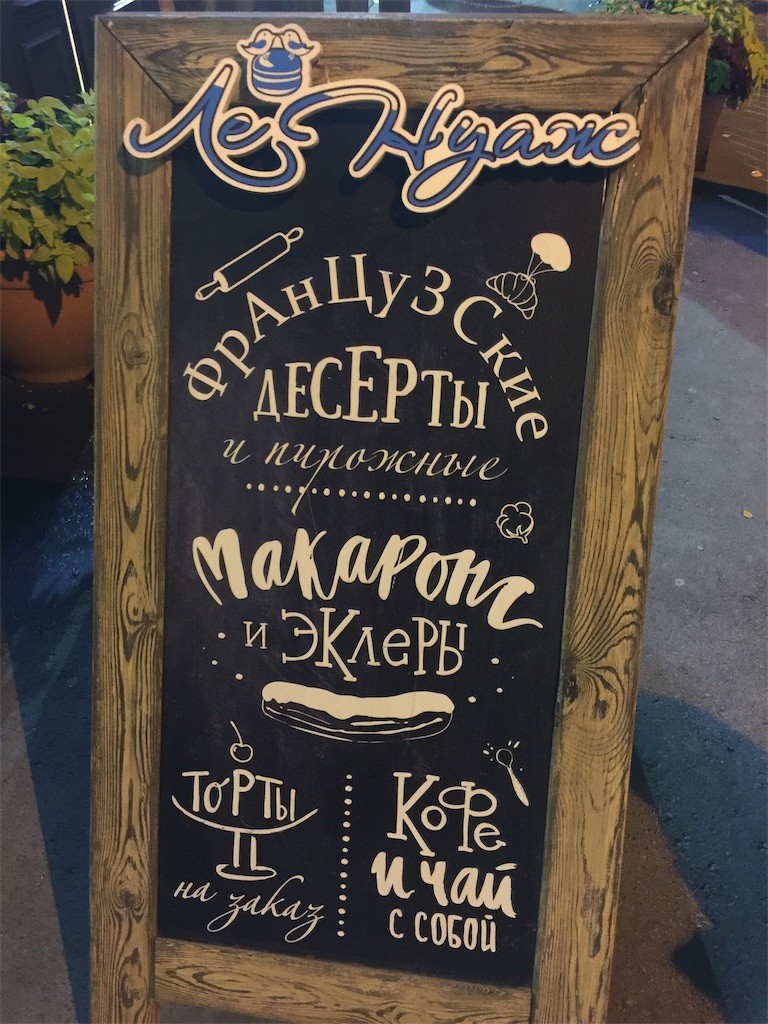 Ле Нуаж
Французские
десерты
и пирожные
Макаронс
и эклеры
Торты
на заказ
Кофе
и чай
с собой